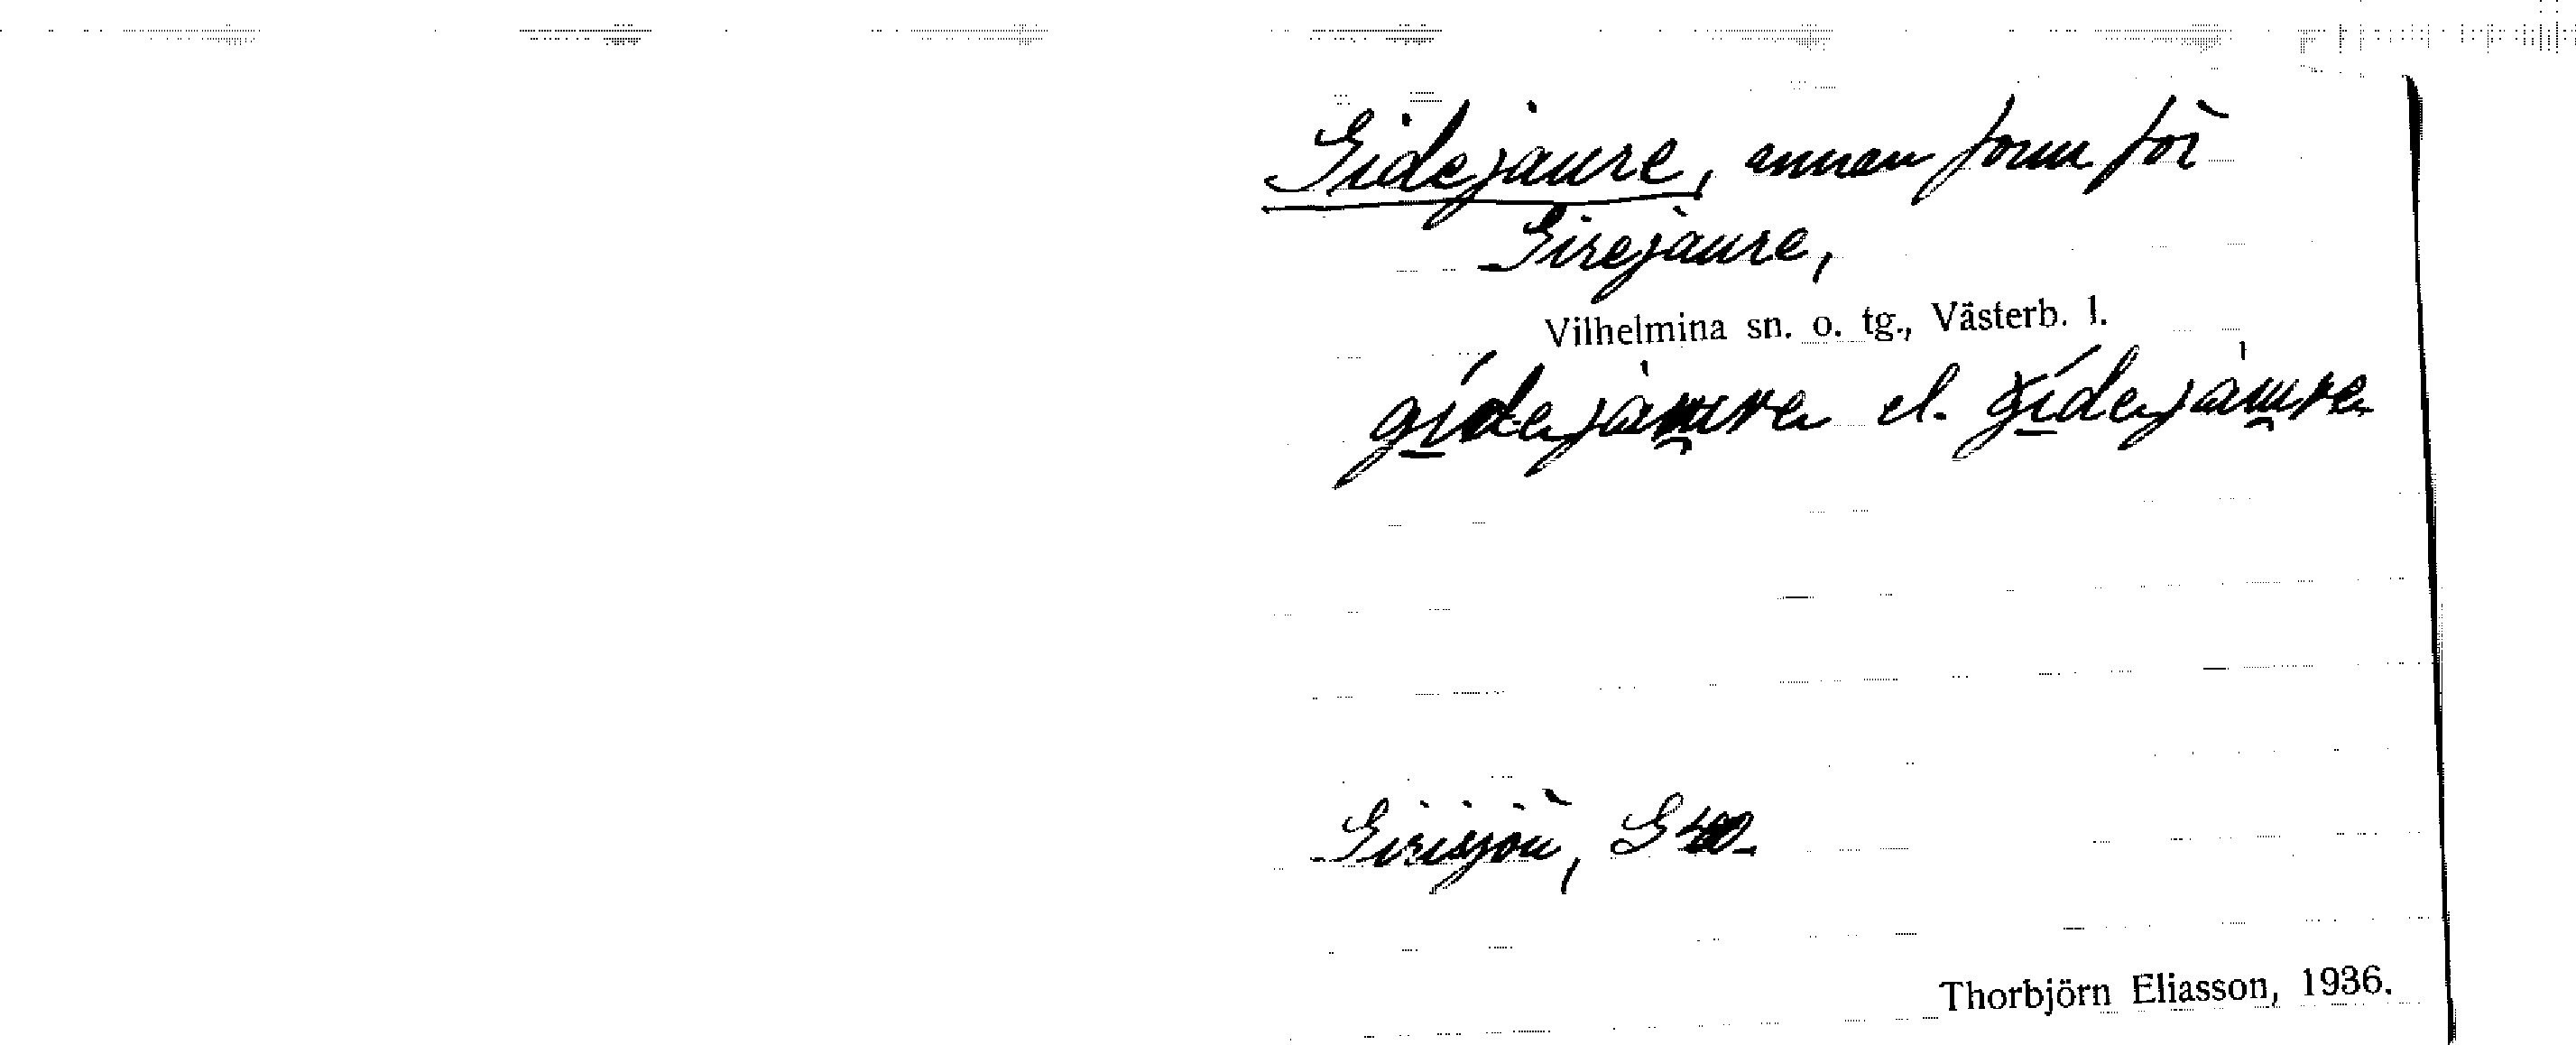 Gidejaure, annan form för
Girejaure,
Vilhelmina sn. o. tg., Västerb. l.
gidejaure el. gidejaure
Girisjön, GEO
Thorbjörn Eliasson, 1936.